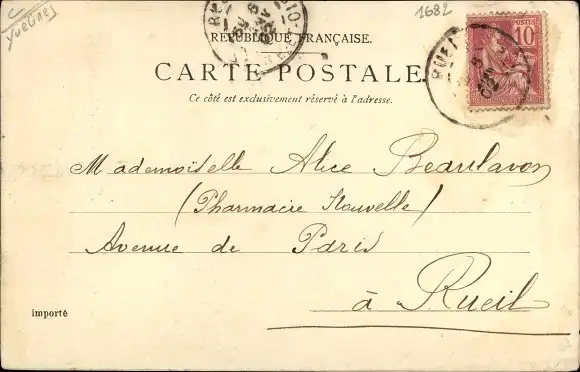 Yvelines
1682
RÉPUBLIQUE FRANÇAISE.
POSTES
10
CARTE POSTALE
Ce côté est exclusivement réservé à l'adresse.
Mademoiselle Alice Beaulavon
(Pharmacie Nouvelle)
Avenue de Paris
à Rueil
importé